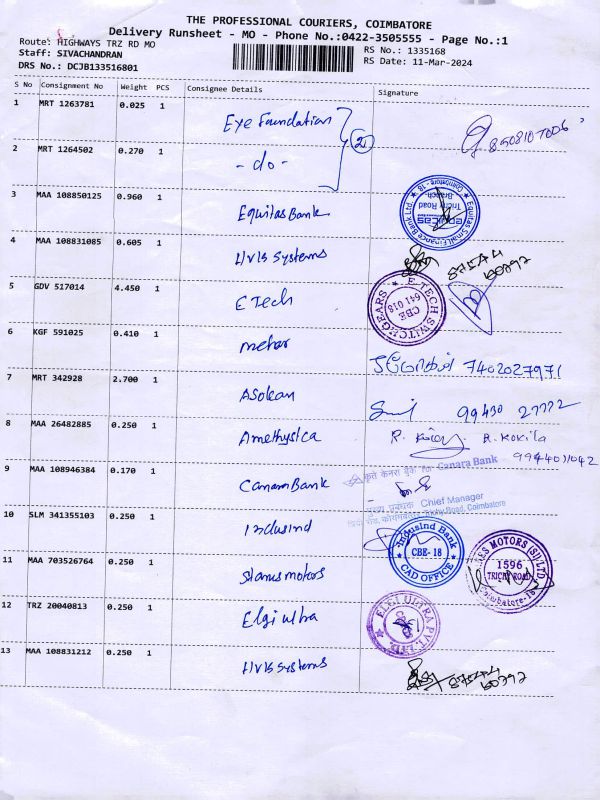 THE PROFESSIONAL COURIERS, COIMBATORE
Delivery Runsheet - MO - Phone No.:0422-3505555 - Page No.:1
Route: HIGHWAYS TRZ RD MO
RS No.: 1335168
Staff: SIVACHANDRAN
RS Date: 11-Mar-2024
DRS No.: DCJB133516801
S No Consignment No Weight PCS Consignee Details Signature
1 MRT 1263781 0.025 1 Eye Foundation 2 8508107006
2 MRT 1264502 0.270 1 - do -
3 MAA 108850125 0.960 1 Equitas Bank
Equitas Small Finance Bank Ltd.
equitas
Tricity Road
Branch
Coimbatore - 18
4 MAA 108831085 0.605 1 HVK Systems 87544
60392
5 GDV 517014 4.450 1 E Tech
E TECH SWITCHGEARS
CBE
641 018
6 KGF 591025 0.410 1 7402027971
7 MRT 342928 2.700 1 Asokan 99430 27772
8 MAA 26482885 0.250 1 Amethystca R. Kokila
9944031042
9 MAA 108946384 0.170 1 Canara Bank
कृते केनरा बैंक For Canara Bank
मुख्य प्रबंधक Chief Manager
Coimbatore
10 SLM 341355103 0.250 1 Indusind
IndusInd Bank
CBE- 18
CAD OFFICE
11 MAA 703526764 0.250 1 Stanes motors
STANES MOTORS (SI) LTD
1596
TRICHY ROAD
Coimbatore-18
12 TRZ 20040813 0.250 1 Elgi ultra
ELGI ULTRA PVT. LTD.
13 MAA 108831212 0.250 1 HVK Systems 87544
60392